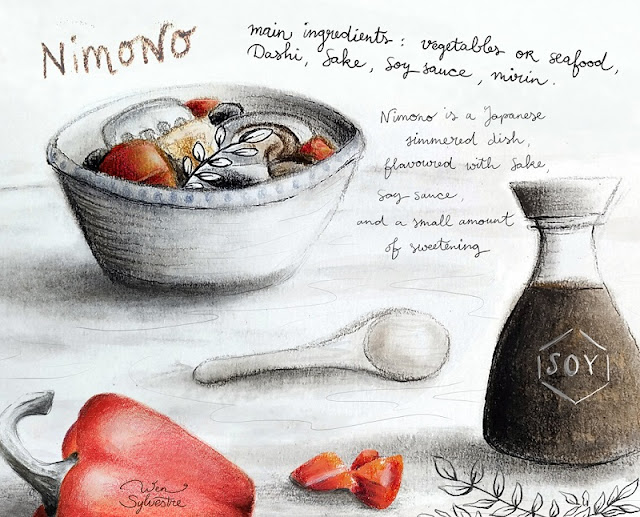 NimoNo
main ingredients: vegetables or seafood,
Dashi, Sake, Soy sauce, mirin.
Nimono is a Japanese
simmered dish,
flavoured with Sake,
soy sauce,
and a small amount
of sweetening
SOY
Wen
Sylvestre